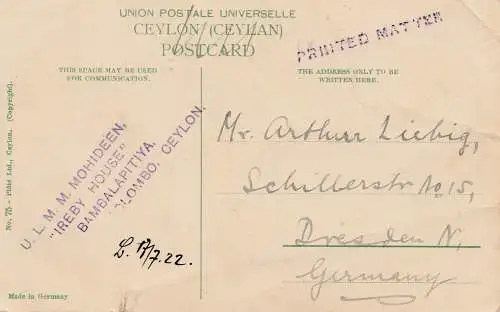 UNION POSTALE UNIVERSELLE
CEYLON (CEYLAN)
POSTCARD
PRINTED MATTER
THIS SPACE MAY BE USED
FOR COMMUNICATION.
THE ADDRESS ONLY TO BE
WRITTEN HERE.
No. 75 - Plâté Ltd., Ceylon. (Copyright).
U. L. M. M. MOHIDEEN,
"IREBY HOUSE"
BAMBALAPITIYA,
OLOMBO. CEYLON.
17/7.22.
Mr. Arthur Liebig,
Schillerstr No 15,
Dresden N,
Germany
Made in Germany